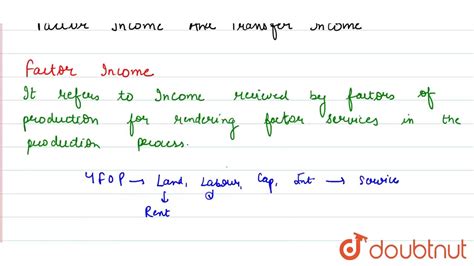 Factor Income And Transfer Income
Factor Income
It refers to Income recieved by factors of
production for rendering factor services in the
production process.
4FOP → Land, Labour, Cap, Ent → Service
↓ ↓
Rent
doubtnut